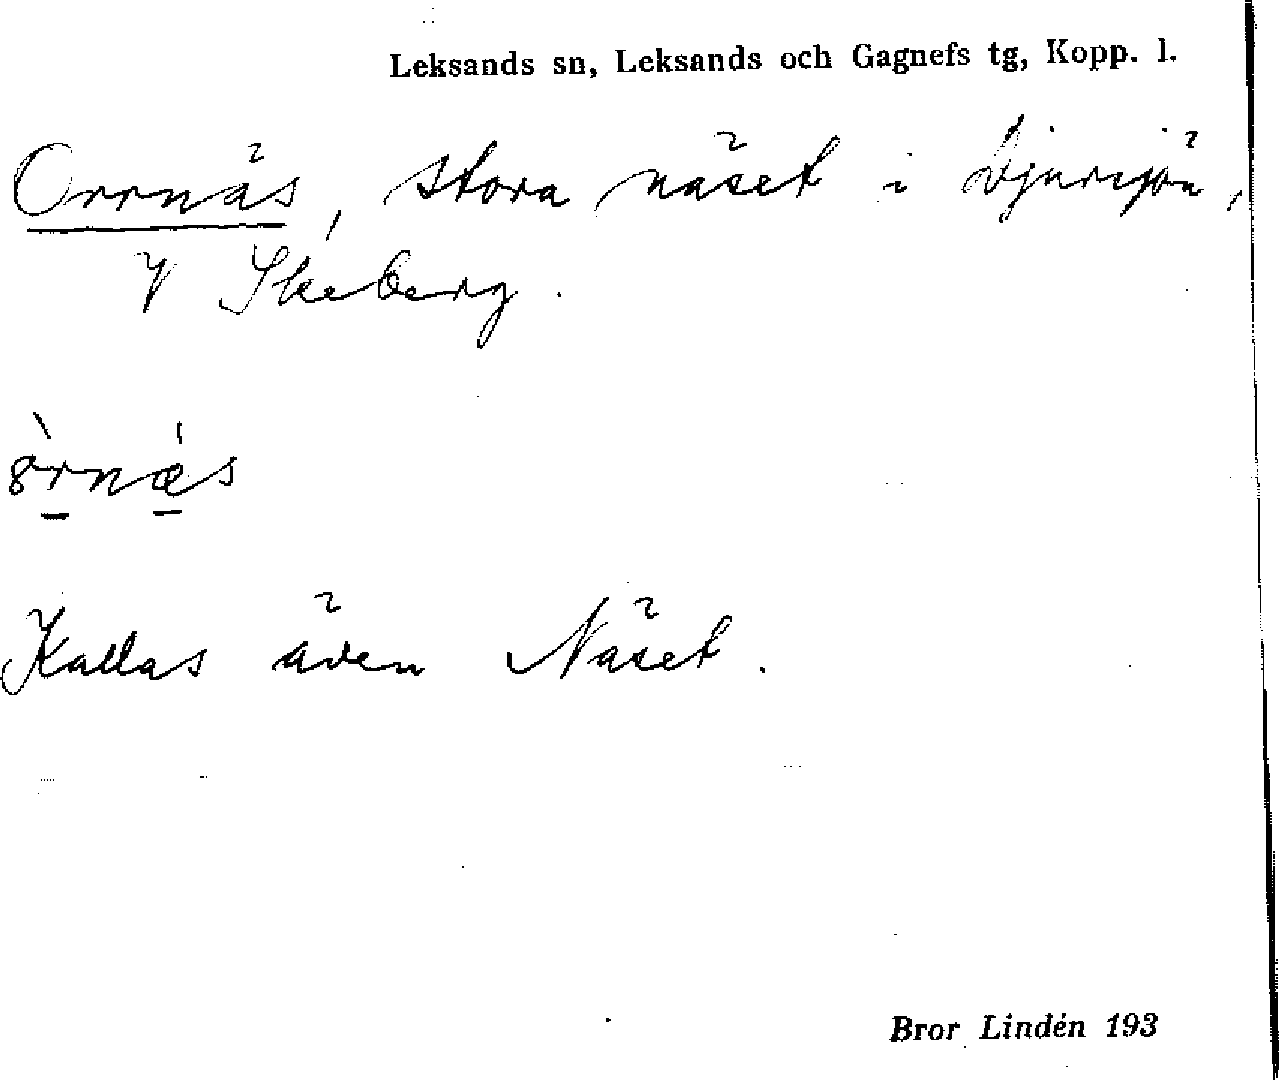 Leksands sn, Leksands och Gagnefs tg, Kopp. l.
Orrnäs, stora näset i Djursjön,
V Skeberg.
ȣ̀rnæ̍s
Kallas även Näset.
Bror Lindén 193